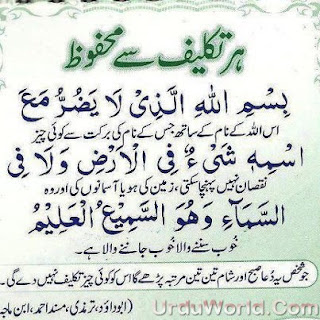 ہر تکلیف سے محفوظ
بِسْمِ اللّٰهِ الَّذِیْ لَا یَضُرُّ مَعَ
اس اللہ کے نام کے ساتھ جس کے نام کی برکت سے کوئی چیز
اسْمِهٖ شَیْءٌ فِی الْاَرْضِ وَلَا فِی
نقصان نہیں پہنچا سکتی، زمین کی ہو یا آسمانوں کی اور وہ
السَّمَآءِ وَهُوَ السَّمِیْعُ الْعَلِیْمُ
خوب سننے والا خوب جاننے والا ہے۔
جو شخص یہ دُعا صبح اور شام تین تین مرتبہ پڑھے گا اس کو کوئی چیز تکلیف نہیں دے گی۔
(ابوداؤد، ترمذی، مسند احمد، ابن ماجہ
UrduWorld.Com